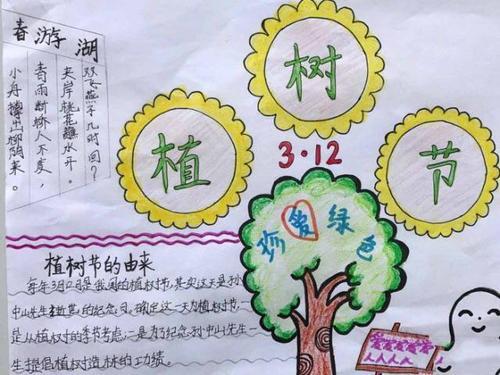 春游湖
双飞燕子几时回？
夹岸桃花蘸水开。
春雨断桥人不度，
小舟撑出柳阴来。
植树节
3·12
珍爱绿色
植树节的由来
每年3月12日是我国的植树节，其实这天是孙
中山先生逝世的纪念日，确定这一天为植树节，一
是从植树的季节考虑，二是为了纪念孙中山先生
生提倡植树造林的功绩。